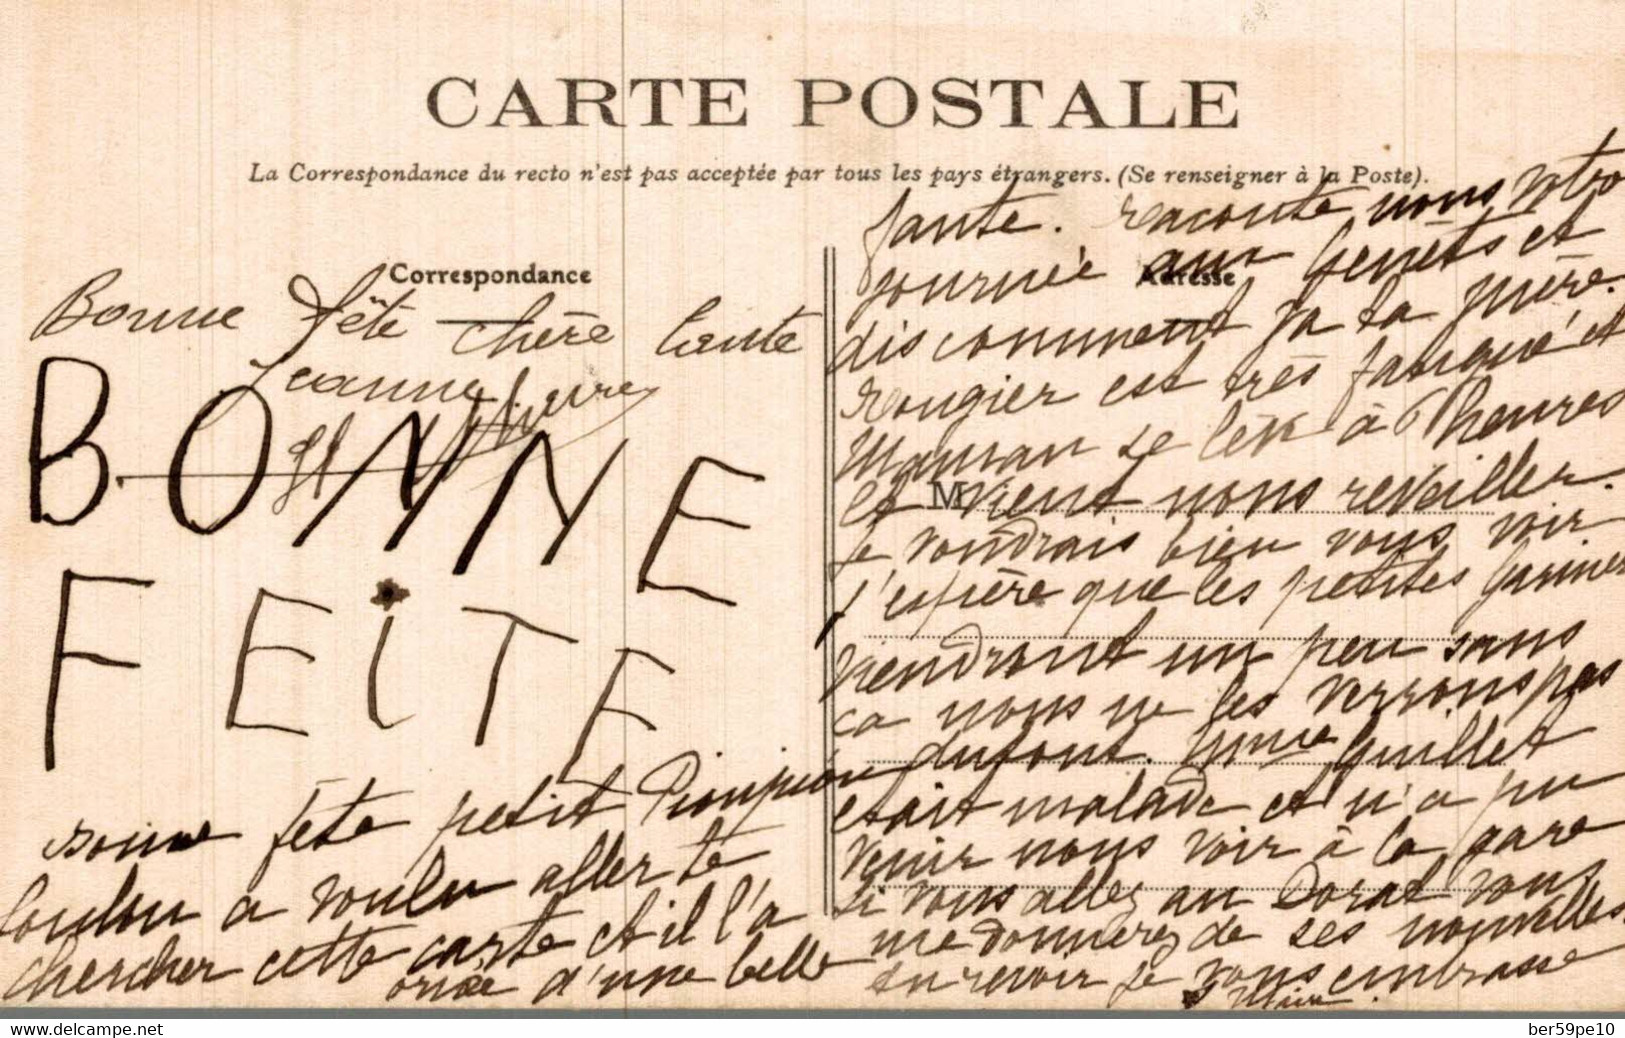 CARTE POSTALE
La Correspondance du recto n'est pas acceptée par tous les pays étrangers. (Se renseigner à la Poste).
Correspondance
Bonne fête chère tante
Jeanne
BONNE
FEITE
bonne fête petit Pioupiou
Loulou a voulu aller te
chercher cette carte et il l'a
ornée d'une belle
Adresse
M
fante. raconte nous votre
journée aux Genêts et
dis comment va ta mère.
Rougier est très fatigué et
Maman se lève à 6 heures
et vient nous reveiller.
Je voudrais bien vous voir
j'espère que les petites
viendront un peu sans
ca nous ne les verrons pas
du tout. Mme Guillet
était malade et n'a pu
venir nous voir à la gare
si vous allez au Dorat vous
me donnerez de ses nouvelles.
au revoir je vous embrasse
ber59pe10